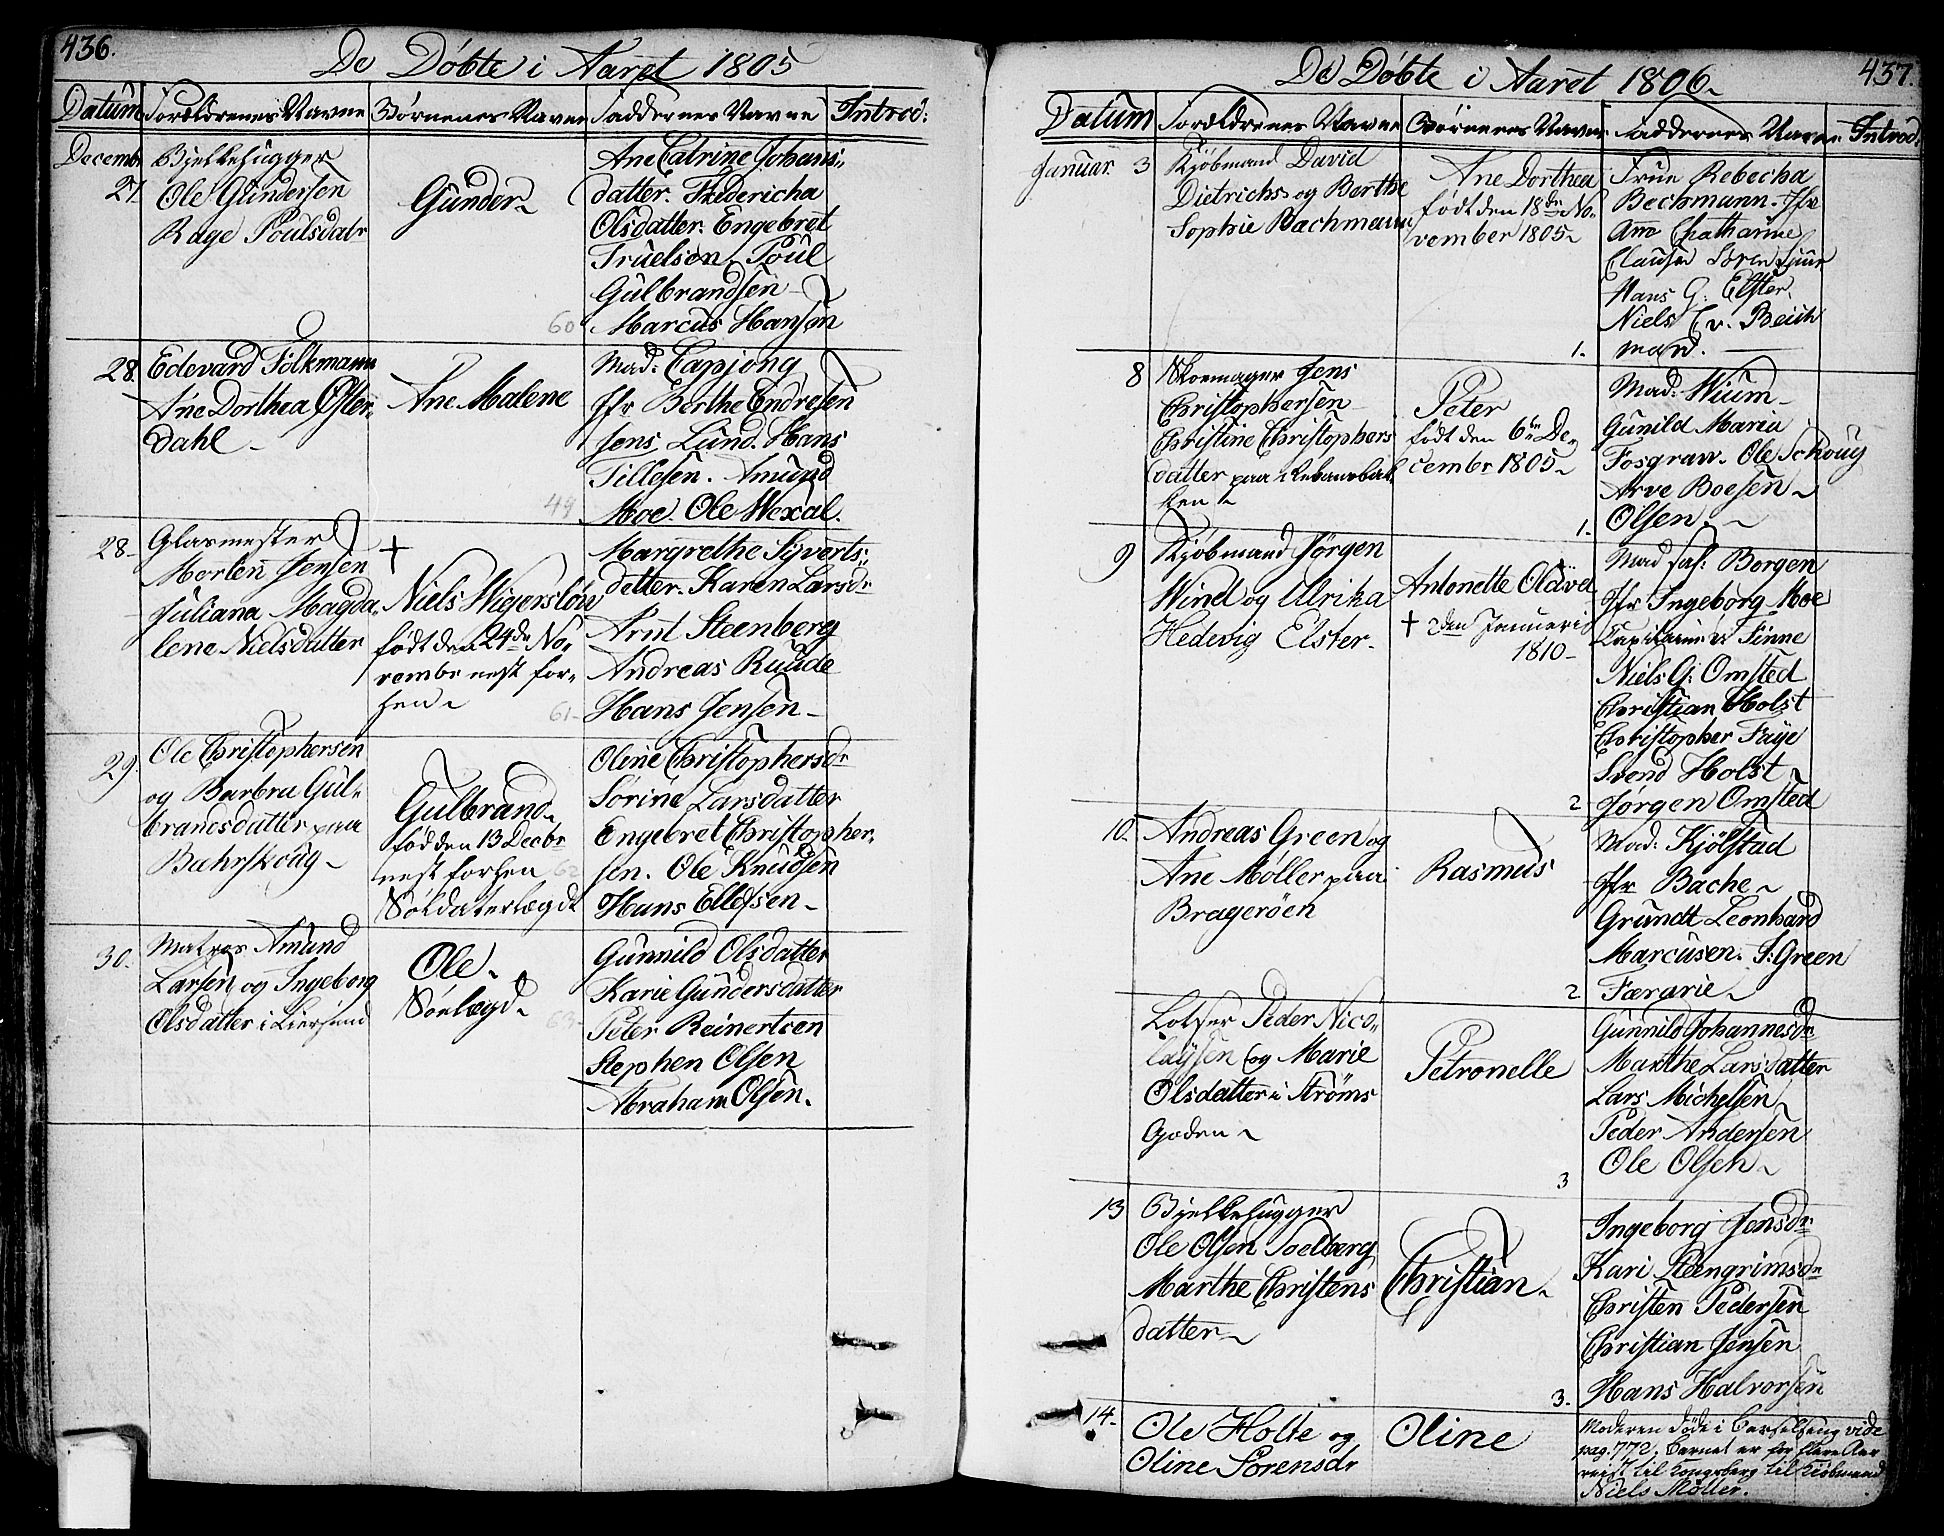 436.
De Döbte i Aaret 1805
Datum Forældrenes Navne Börnenes Navne Faddernes Navne Introd:
Decemb.
27
Bjelkehugger
Ole Gundersen
Rage Poulsdatr
Gunder
Ane Catrine Johans-
datter. Fridericha
Olsdatter. Engebret
Truelsen. Poul
Gulbrandsen
Marcus Hansen
60
28.
Edevard Folkmann
Ane Dorthea Öster-
dahl
Ane Malene
Mad: Capjong
Jfr Berthe Endresen
Jens Lund. Hans
Tillesen. Amund
Moe. Ole Wexal.
28
Glasmester
Morten Jensen
Juliana Magda-
lene Nielsdatter
†
Niels Wigerslöw
födt den 24de No-
vembr nest for-
hen
61
Margrethe Syverts-
datter. Karen Larsdr
Arnt Steenberg
Andreas Ruude
Hans Jensen
29.
Ole Christophersen
og Barbra Gul-
brandsdatter paa
Bæhrskoug
Gulbrand
föd den 13 Decbr
nest forhen
62
Soldaterlægd
Oline Christophersdr
Sörine Larsdatter
Engebret Christopher-
sen. Ole Knudsen
Hans Ellefsen
30.
Matros Amund
Larsen og Ingeborg
Olsdatter i Liersund
Ole
Söelægd
63
Gunnild Olsdatter
Karie Gundersdatter
Peter Reinertsen
Stephen Olsen
Abraham Olsen.
437.
De Döbte i Aaret 1806
Datum Forældrenes Navne Börnenes Navne Faddernes Navne Introd:
Januar. 3
Kjöbmand David
Dietrichs og Berthe
Sophie Bachmann
Ane Dorthea
födt den 18de No-
vember 1805
1.
Frue Rebecha
Bechmann. Jfr
Ane Chatharine
Clausen
Hans G: Elster.
Niels
mand.
8
Skoemager Jens
Christophersen
Christine Christophers
datter paa
ken
Peter
födt den 6te De-
cember 1805
1.
Mad: Wium
Gunild Maria
Fosgraw. Ole Schoug
Arve Boesen
Olsen
9
Kjöbmand Jörgen
Wind og Ulrika
Hedevig Elster
Antonette Olava
† den Januari
1810
2
Mad sal: Borgen
Jfr Ingeborg Moe
Capitaine v Finne
Niels G: Omsted
Christian Holst
Christopher Faye
Svend Holst
Jörgen Omsted
10
Andreas Green og
Ane Møller paa
Bragerøen
Rasmus
2
Mad: Kjölstad
Jfr Bache
Grundt Leonhard
Marcusen. S: Green
Færarie
Lotser Peder Nico-
laysen og Marie
Olsdatter i Ströms
Goden
Petronelle
3
Gunnild Johannesdr
Marthe Larsdatter
Lars Michelsen
Peder Andersen
Ole Olsen
13
Bjelkehugger
Ole Olsen Soelberg
Marthe Christens
datter
Christian
3.
Ingeborg Jensdr
Kari Steengrimsdr
Christen Pedersen
Christian Jensen
Hans Halvorsen
14.
Ole Holte og
Oline Sörensdr
Oline
Moderen döde i Barselseng vide
pag. 772. Barnet er for flere Aar
reist til Kongsberg til Kiöbmand
Niels Möller.